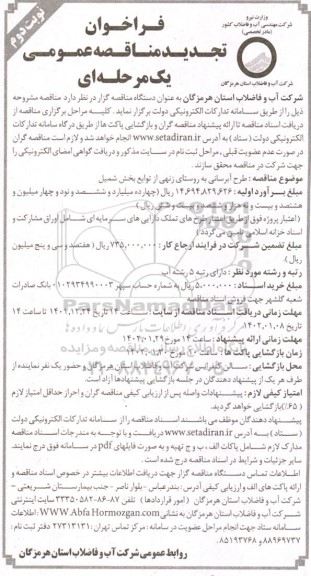 وزارت نیرو
شرکت مهندسی آب و فاضلاب کشور
(مادر تخصصی)
شرکت آب و فاضلاب استان هرمزگان
نوبت دوم
فراخوان
تجدید مناقصه عمومی
یک مرحله‌ای
شرکت آب و فاضلاب استان هرمزگان به عنوان دستگاه مناقصه گزار در نظر دارد مناقصه مشروحه
ذیل را از طریق سامانه تدارکات الکترونیکی دولت برگزار نماید. کلیه مراحل برگزاری مناقصه از
دریافت اسناد مناقصه تا ارائه پیشنهاد مناقصه گران و بازگشایی پاکت ها از طریق درگاه سامانه تدارکات
الکترونیکی دولت (ستاد) به آدرس www.setadiran.ir انجام خواهد شد و لازم است مناقصه گران
در صورت عدم عضویت قبلی، مراحل ثبت نام در سایت مذکور و دریافت گواهی امضای الکترونیکی را
جهت شرکت در مناقصه محقق سازند.
موضوع مناقصه: طرح آبرسانی به روستای زنهی از توابع بخش شمیل
مبلغ برآورد اولیه: ۱۴،۶۹۴،۸۲۹،۶۳۶ ریال (چهارده میلیارد و ششصد و نود و چهار میلیون و
هشتصد و بیست و نه هزار و ششصد و سی و شش ریال)
(اعتبار پروژه فوق از طریق اعتبار طرح های تملک دارایی های سرمایه ای شامل اوراق مشارکت و
اسناد خزانه اسلامی تامین می گردد)
مبلغ تضمین شرکت در فرآیند ارجاع کار: ۷۳۵،۰۰۰،۰۰۰ ریال (هفتصد و سی و پنج میلیون
ریال).
رتبه و رشته مورد نظر: دارای رتبه ۵ رشته آب
مبلغ خرید اسناد: ۵،۰۰۰،۰۰۰ ریال به شماره حساب سپهر ۰۱۰۲۹۳۴۹۹۰۰۰۳ بانک صادرات
شعبه گلشهر جهت فروش اسناد مناقصه
مهلت زمانی دریافت اسناد مناقصه از سایت: ساعت ۱۴ تاریخ ۱۴۰۱،۱۲،۲۴ تا ساعت ۱۴
تاریخ ۱۴۰۲،۰۱،۰۸
مهلت زمانی ارائه پیشنهاد: ساعت ۱۴ مورخ ۱۴۰۲،۰۱،۲۹
زمان بازگشایی پاکت ها: ساعت ۱۰ مورخ ۱۴۰۲،۰۱،۳۰
محل بازگشایی: سالن کنفرانس شرکت آب و فاضلاب استان هرمزگان و حضور یک نفر نماینده از
طرف هر یک از پیشنهاد دهندگان در جلسه بازگشایی پیشنهادها آزاد است.
امتیاز کیفی لازم: پیشنهادات واصله پس از ارزیابی کیفی مناقصه گران و احراز حداقل امتیاز لازم
(۶۵٪) بازگشایی خواهد گردید.
پیشنهاد دهندگان موظف می باشند اسناد مناقصه را از سامانه تدارکات الکترونیکی دولت
(ستاد) به آدرس www.setadiran.ir دریافت و با توجه به مندرجات اسناد مناقصه
مدارک لازم شامل پاکات الف، ب و ج تهیه و به صورت فایلهای pdf در سامانه فوق درج نمایند.
سایر جزئیات و شرایط در اسناد مناقصه درج شده است.
اطلاعات تماس دستگاه مناقصه گزار جهت دریافت اطلاعات بیشتر در خصوص اسناد مناقصه و
ارائه پاکت های الف و ارزیابی کیفی آدرس: بندرعباس - بلوار ناصر - جنب بیمارستان شریعتی -
شرکت آب و فاضلاب استان هرمزگان (امور قراردادها) تلفن ۸۷-۸۶-۳۳۳۵۰۵۸۲ سایت اینترنتی
شرکت آب و فاضلاب استان هرمزگان به نشانی WWW.Abfa Hormozgan.com؛ اطلاعات
سامانه ستاد جهت انجام مراحل عضویت در سامانه: مرکز تماس تهران: ۲۷۳۱۳۱۳۱ دفتر ثبت نام:
۸۸۹۶۹۷۳۷ و ۸۵۱۹۳۷۶۸
روابط عمومی شرکت آب و فاضلاب استان هرمزگان